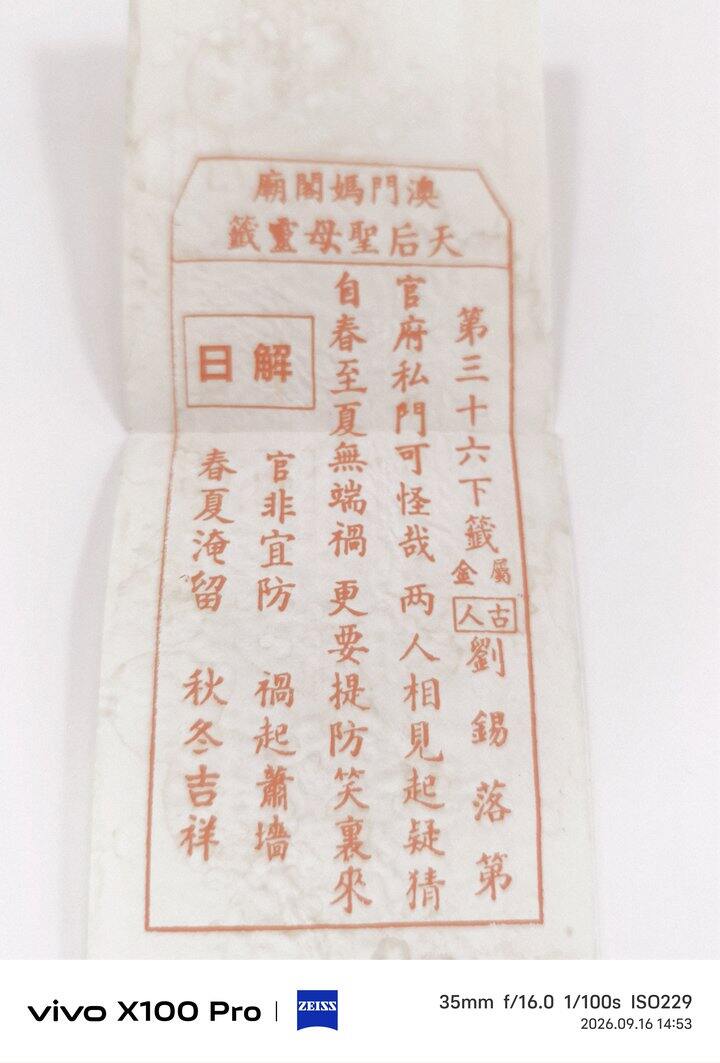 澳門媽閣廟
天后聖母靈籤
第三十六下籤 屬金 古人 劉錫落第
官府私門可怪哉 两人相見起疑猜
自春至夏無端禍 更要提防笑裏來
解日
官非宜防 禍起蕭墻
春夏淹留 秋冬吉祥
vivo X100 Pro | ZEISS
35mm f/16.0 1/100s ISO229
2026.09.16 14:53